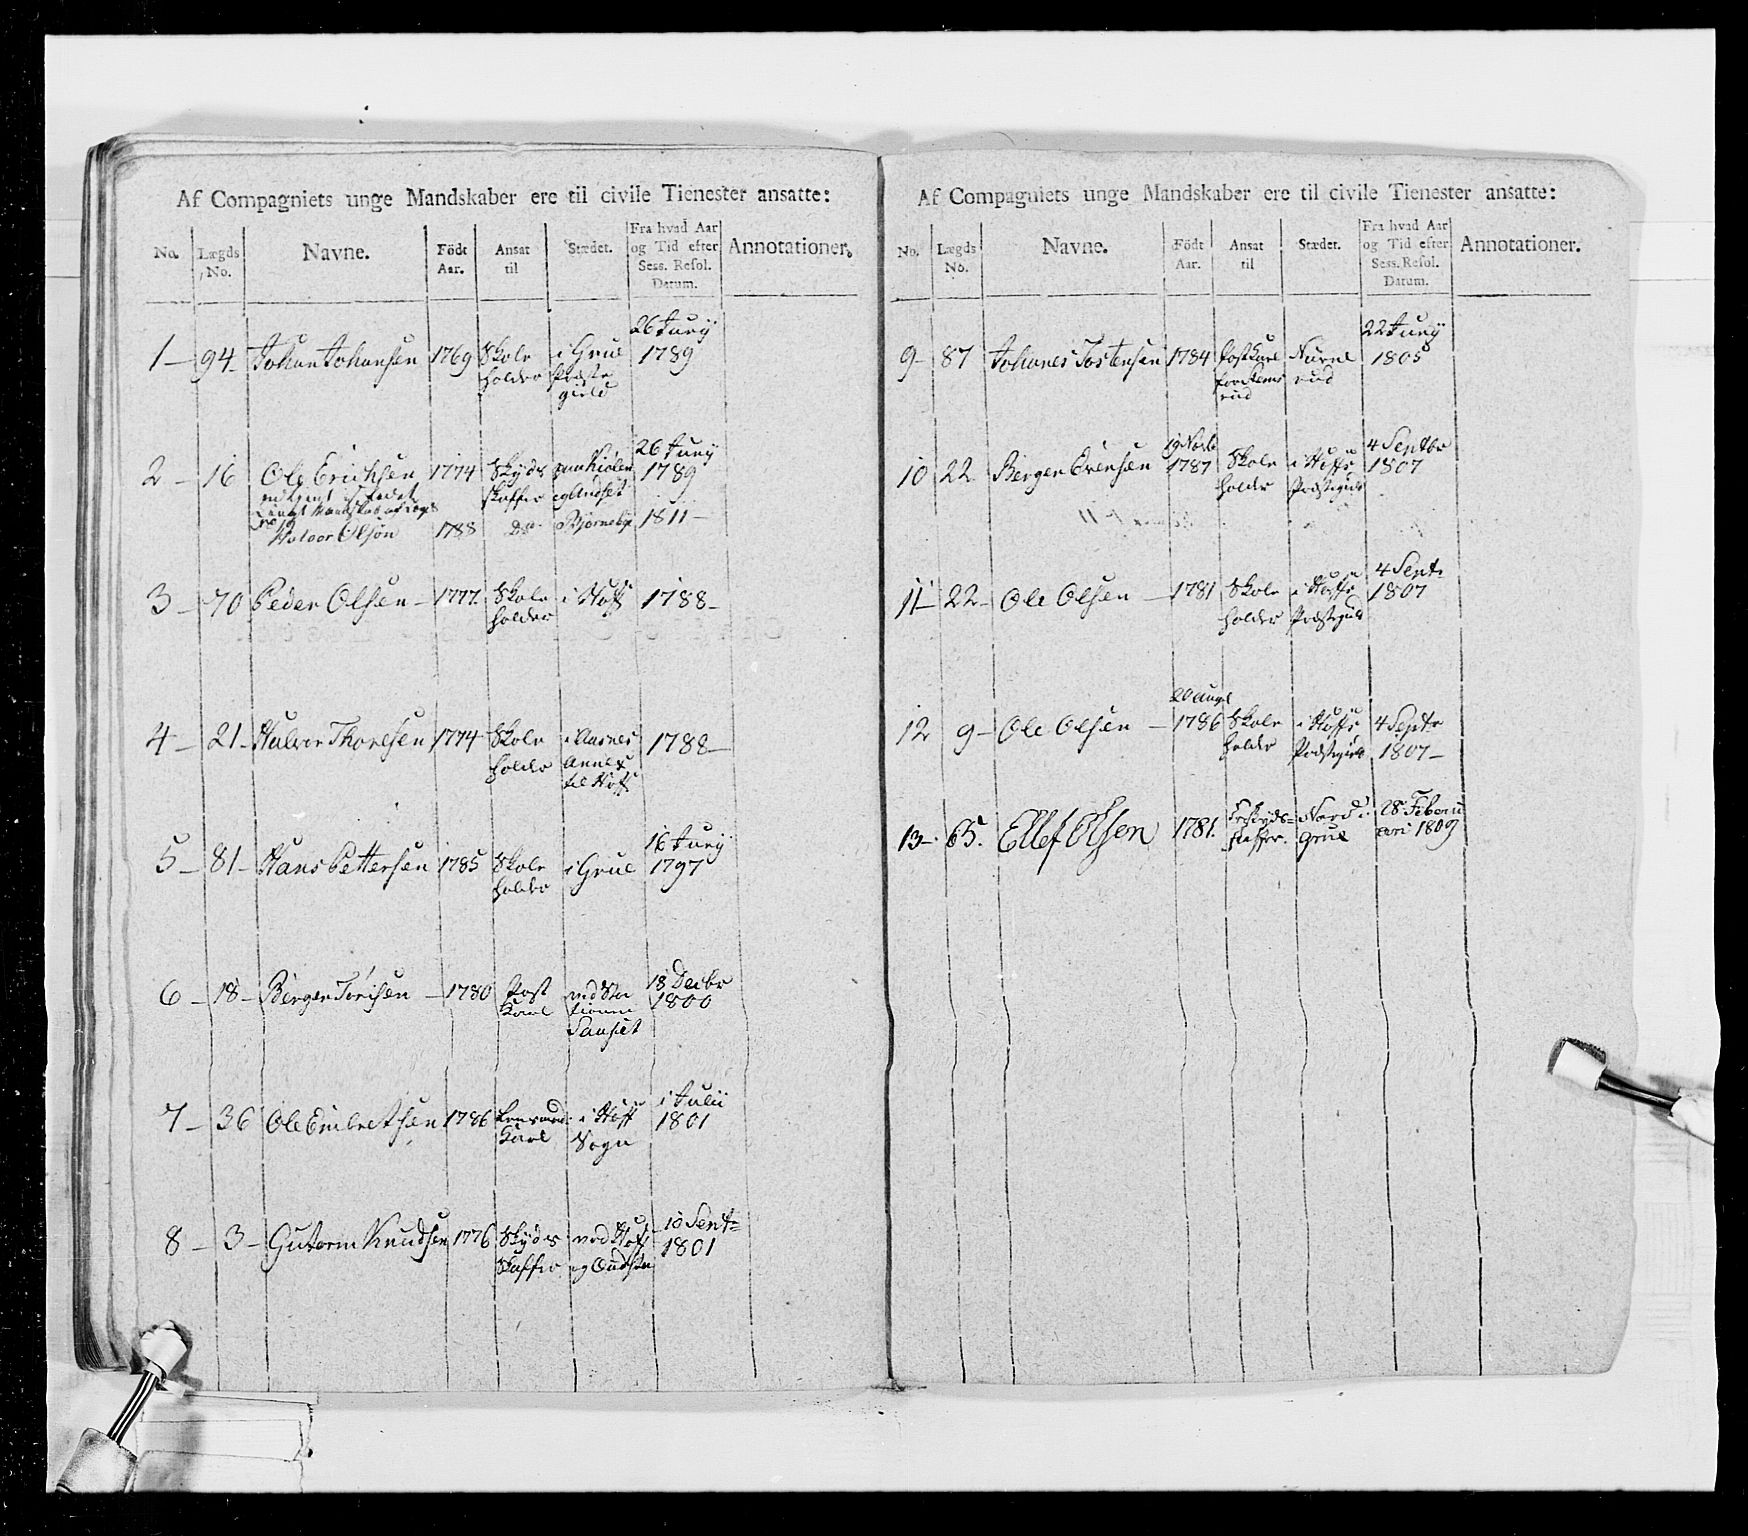 Af Compagniets unge Mandskaber ere til civile Tienester ansatte:
No. Lægds No. Navne. Födt Aar. Ansat til Stædet. Fra hvad Aar og Tid efter Sess. Resol. Datum. Annotationer.
26 Juny
1 - 94 - Johan Johansen 1769 Skole i Grue 1789
holder Præste
gield
26 Juny
2 - 16 Ole Erichsen 1774 Skyds 1789
skaffer
Halvor Olsøn 1788 Do Bjørneby 1811 -
3 - 70 Peder Olsen - 1777. Skole i Hoff 1788 -
holder
4 - 21 - Halvor Thoresen 1774 Skole i Aasnes 1788 -
holder Annex
til Hoff
16 Juny
5 - 81 - Hans Pettersen 1785 Skole i Grue 1797
holder
18 Decbr
6 - 18 - Berger - 1780 Post ved Sta 1800
Karl tionen
1 Julii
7 - 36 Ole Embretsen 1786 i Hoff 1801
Karl Sogn
10 Sept
8 - 3 - Gutorm Knudsen 1776 Skyds ved Hoff 1801
Skaffer og
Af Compagniets unge Mandskaber ere til civile Tienester ansatte:
No. Lægds No. Navne. Födt Aar. Ansat til Stædet. Fra hvad Aar og Tid efter Sess. Resol. Datum. Annotationer.
22 Juny
9 - 87 Johanes Tostensen 1784 Postkarl 1805
rud
rud
19 4 Septbr
10 22 Berger Evensen 1787 Skole i Hoffs 1807
holder Præstegield
4 Sept
11 - 22 - Ole Olsen - 1781 Skole i Hoffs 1807
holder Præstegield
20 Aug
12 9 - Ole Olsen - 1786 Skole i Hoffs 4 Septr
holder Præstegield 1807 -
13 - 65. Ellef Olsen 1781. Nord i 28 Febru
skaffer. Grue ari 1809